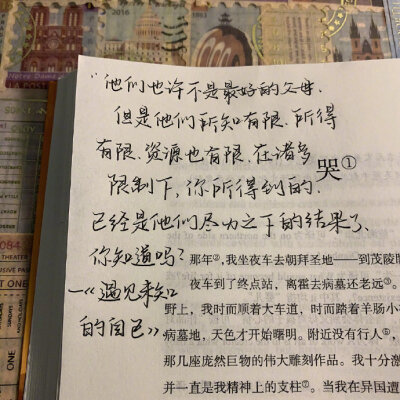 2016
NOTRE DAME
"他们也许不是最好的父母.
但是他们所知有限.所得
有限.资源也有限.在诸多
限制下,你所得到的.
已经是他们尽力之下的结果了、
你知道吗?
—《遇见未知
的自己》
哭①
那年②,我坐夜车去朝拜圣地——到茂陵
夜车到了终点站,离霍去病墓还老远③.
野上,我时而顺着大车道,时而踏着羊肠小
病墓地,天色才开始曙明。附近没有行人⑥,
那几座庞然巨物的伟大雕刻作品。我十分激
并一直是我精神上的支柱⑦。当我在异国遭